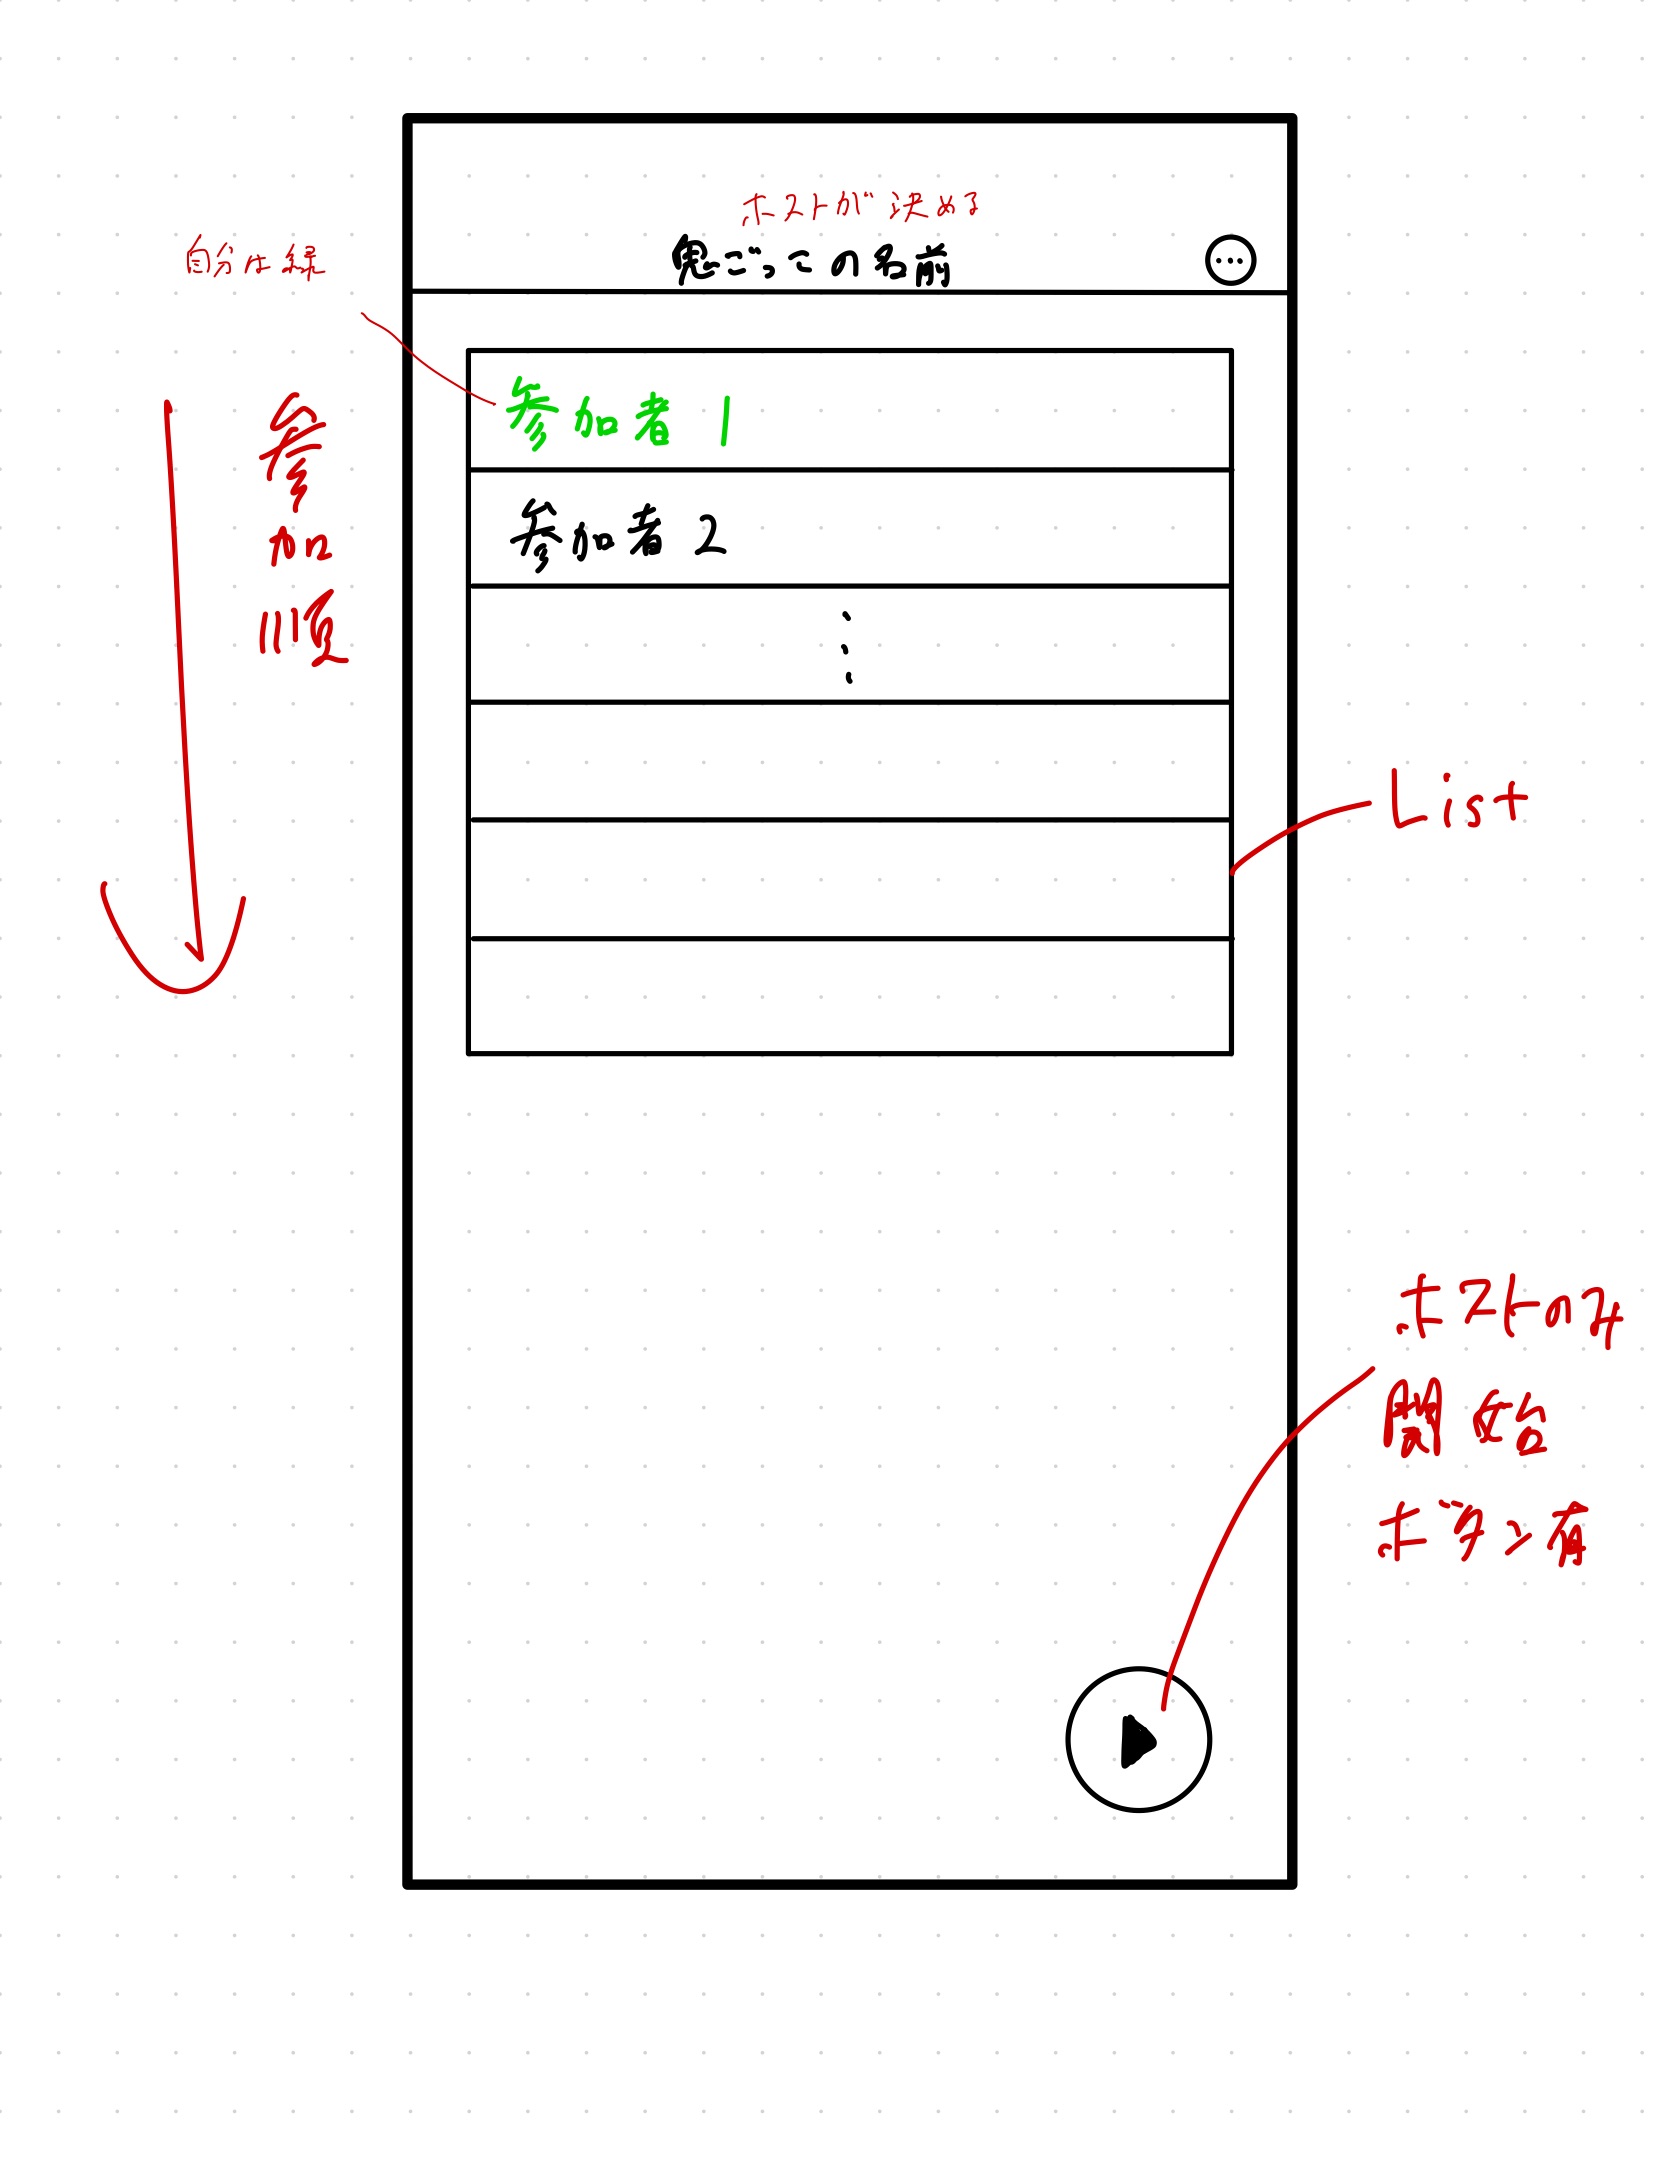 ホストが決める
鬼ごっこの名前
自分は緑
参加順
参加者 1
参加者 2
List
ホストのみ
開始
ボタン有